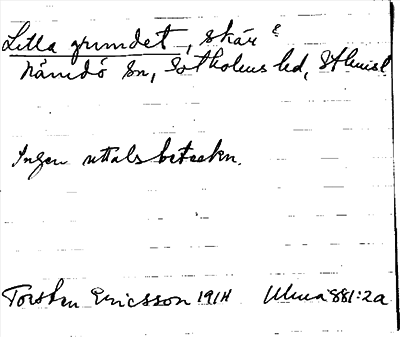 Lilla grundet, skär?
Nämdö sn, Sotholms hd, Sthmsl
Ingen uttalsbeteckn.
Torsten Ericsson 1914 Ulma 881:2a